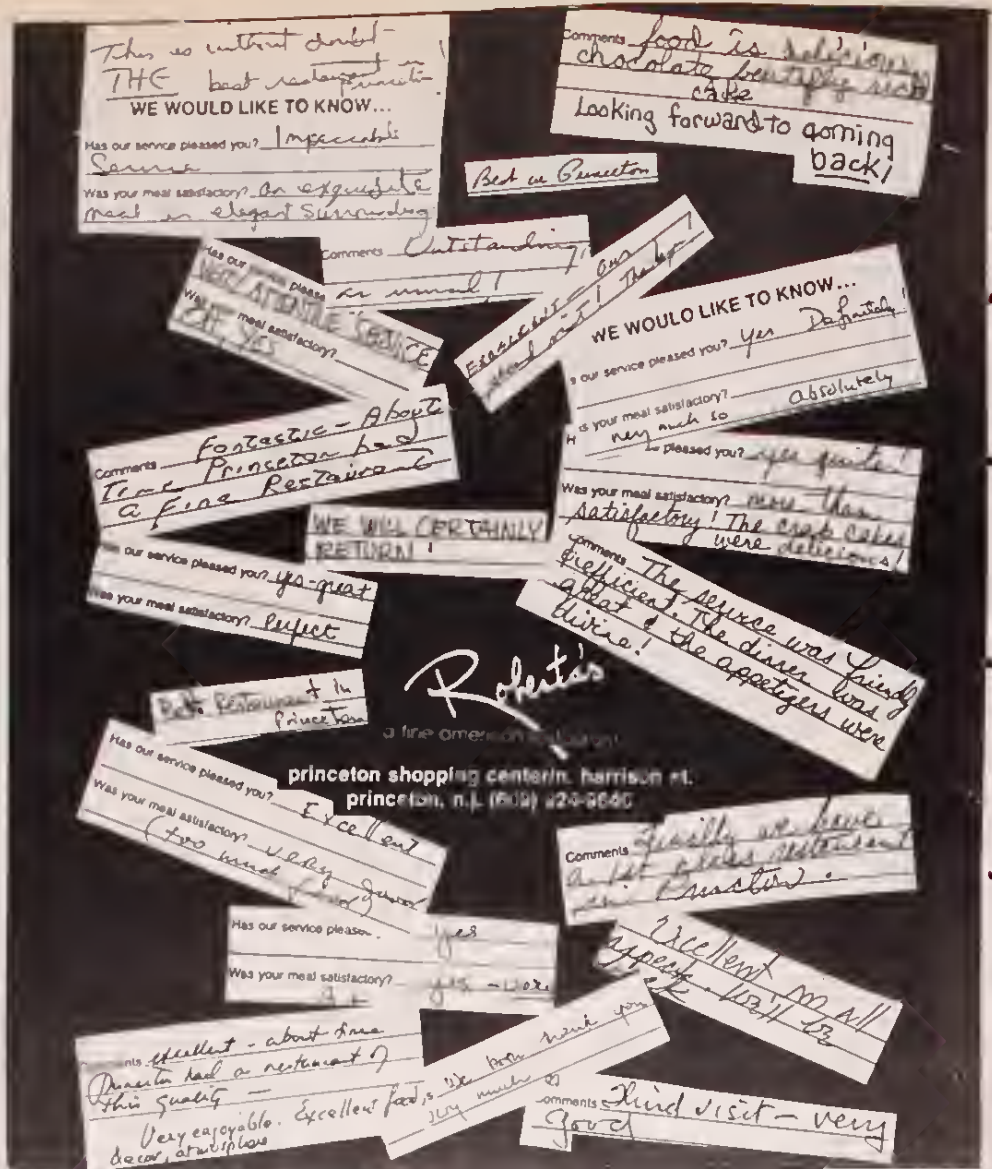 This is without doubt
THE best restaurant in
WE WOULD LIKE TO KNOW...
Has our service pleased you? Impeccable
Service
Was your meal satisfactory? an exquisite
meal in elegant surrounding
Comments food is delicious
chocolate
cake
Looking forward to
back!
Best in Princeton
Comments Outstanding
as usual!
Has our service please
VERY ATTENTIVE SERVICE
Was meal satisfactory?
YES
EXCELLENT - our
visit!
WE WOULD LIKE TO KNOW...
our service pleased you? Yes Definitely!
your meal satisfactory? absolutely
very much so
Comments Fantastic - About
Time Princeton had
a Fine Restaurant
pleased you? yes quite!
Was your meal satisfactory? more than
satisfactory! The crab cakes
were delicious!
WE WILL CERTAINLY
RETURN!
our service pleased you? yes-great
your meal satisfactory? Perfect
Comments The service was friendly
efficient. The dinner was
great & the appetizers were
divine!
Roberta's
a fine american restaurant
Restaurant in
Princeton
princeton shopping center/n. harrison st.
princeton, n.j. (609)
Has our service pleased you?
Excellent
Was your meal satisfactory? very
(too much
Comments Finally we have
a 1st class restaurant
in Princeton.
Has our service please
yes
Was your meal satisfactory?
yes
Excellent in all
Comments excellent - about time
Princeton had a restaurant of
this quality -
Very enjoyable. Excellent food,
decor, atmosphere
thank you
very much
Comments Third visit - very
good